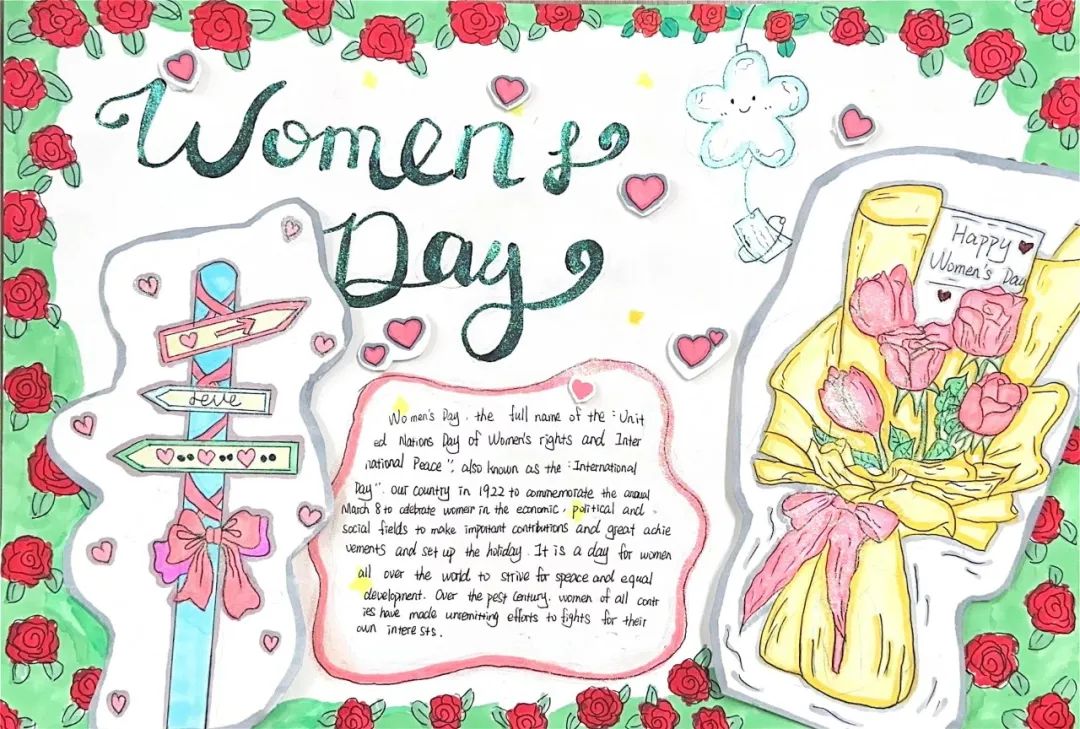 Women's
Day
Happy
Women's Day
Love
Women's Day, the full name of the "Unit
ed Nations Day of Women's rights and Inter
national Peace", also known as the "International
Day". our country in 1922 to commemorate the annual
March 8 to celebrate women in the economic, political and
social fields to make important contributions and great achie
vements and set up the holiday. It is a day for women
all over the world to strive for speace and equal
development. Over the pest Century. women of all contr
ies have made unremitting efforts to fights for their
own interests.